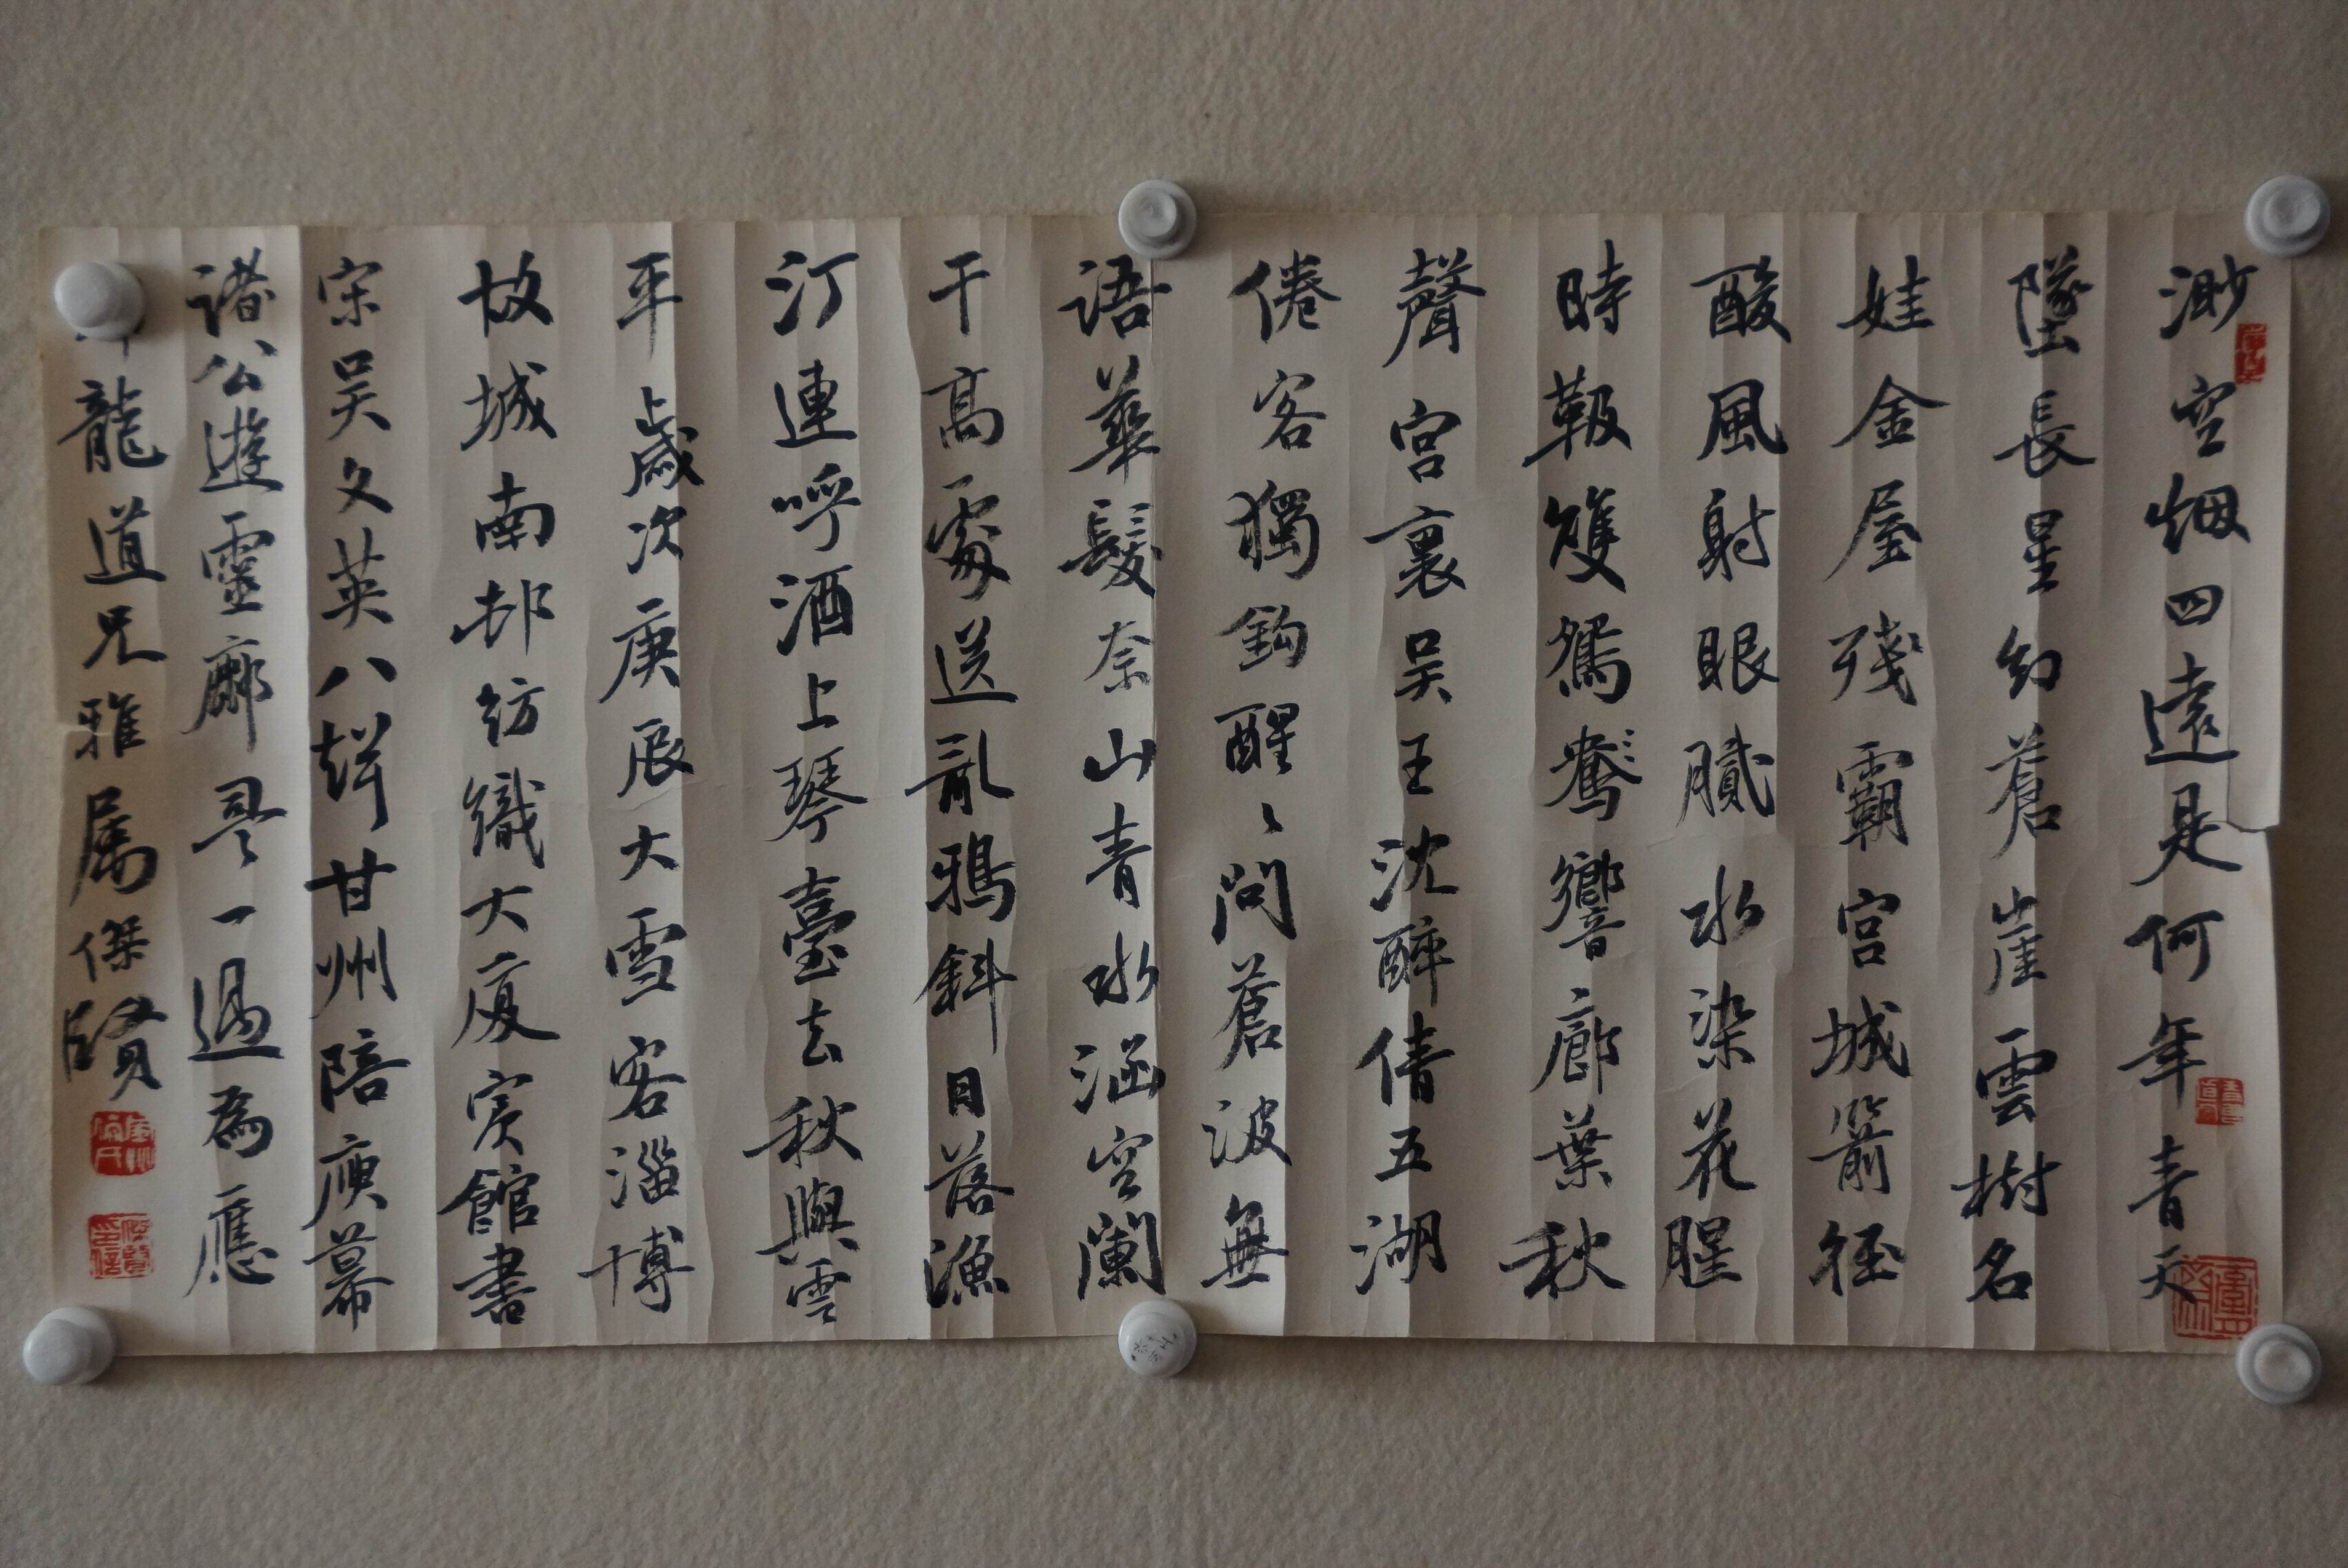 渺空烟四遠是何年青天
墜長星幻蒼崖雲樹名
娃金屋殘霸宮城箭徑
酸風射眼膩水染花腥
時靸雙鴛鴦響廊葉秋
聲宮裏吳王沈醉倩五湖
倦客獨釣醒〻問蒼波無
語華髮奈山青水涵空闌
干高處送亂鴉斜日落漁
汀連呼酒上琴臺去秋與雲
平歲次庚辰大雪客淄博
故城南邨紡織大廈賓館書
宋吳文英八聲甘州陪庾幕
諸公遊靈廊是一過為應
龍道兄雅属傑賢